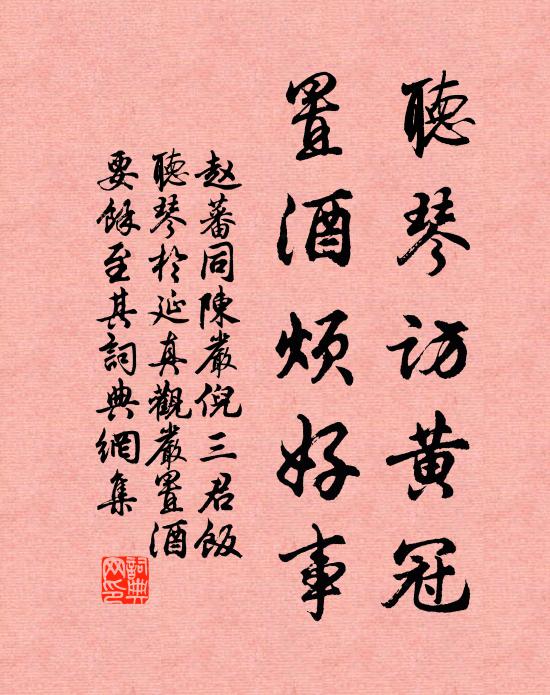 聽琴訪黄冠
置酒煩好事
赵蕃同陳嚴倪三君飯
聽琴於延真觀嚴置酒
要餘至其詞典網集
詞典
网印